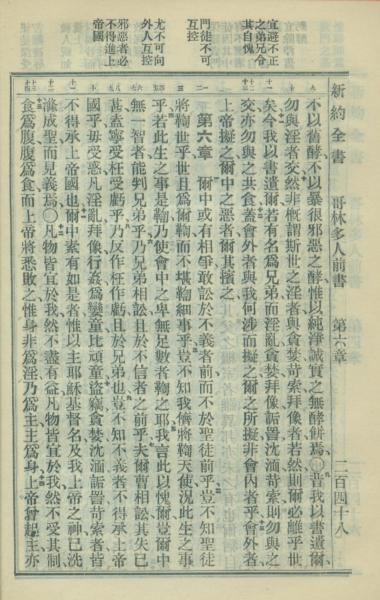 新約全書 哥林多人前書 第六章 二百四十八
宜避不正
之弟兄令
其自愧
門徒不可
互控
尤不可向
外人互控
邪惡者必
不得進上
帝國
不以舊酵不以暴很邪惡之酵惟以純淨誠實之無酵餅焉〇昔我以書遺爾
勿與淫者交然非概謂斯世之淫者與貪婪苛索拜像者若然則爾必離乎世
矣今我以書遺爾若有名爲兄弟而淫亂貪婪拜像詬詈沈湎苛索則勿與之
交亦勿與之共食蓋會外者與我何涉而擬之爾之所擬非會內者乎會外者
上帝擬之爾中之惡者爾其擯之
第六章 爾中或有相爭敢訟於不義者前而不於聖徒前乎豈不知聖徒
將鞫世乎世且爲爾鞫而不堪鞫細事乎豈不知我儕將鞫天使況此生之事
乎若此生之事是鞫乃使會中之卑無足數者鞫之耶我言此以愧爾豈爾中
無一智者能判兄弟乎乃兄弟相訟且於不信者之前乎夫爾曹相訟其失已
甚盍寧受枉受虧乎乃反作枉作虧且於兄弟也豈不知不義者不得承上帝
國乎毋受惑凡淫亂拜像行姦爲孌童比頑童盜竊貪婪沈湎詬詈苛索者皆
不得承上帝國也爾中素有如是者惟以主耶穌基督名及我上帝之神已洗
滌成聖而見義焉〇凡物皆宜於我然不盡有益凡物皆宜於我然不受其制
食爲腹腹爲食而上帝將悉敗之惟身非爲淫乃爲主主爲身上帝曾起主亦